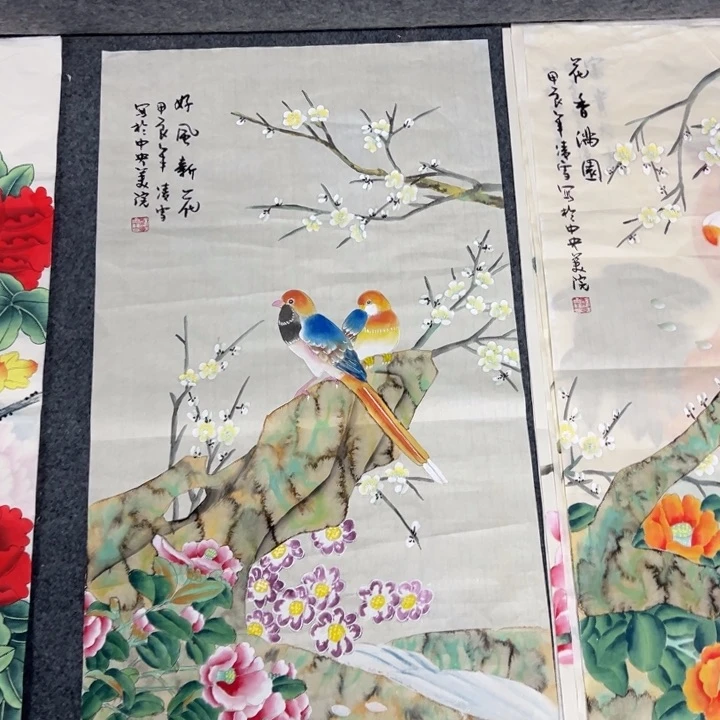 好風新花
甲辰年清雪
写於中央美院
花香满園
甲辰年清雪写於中央美院